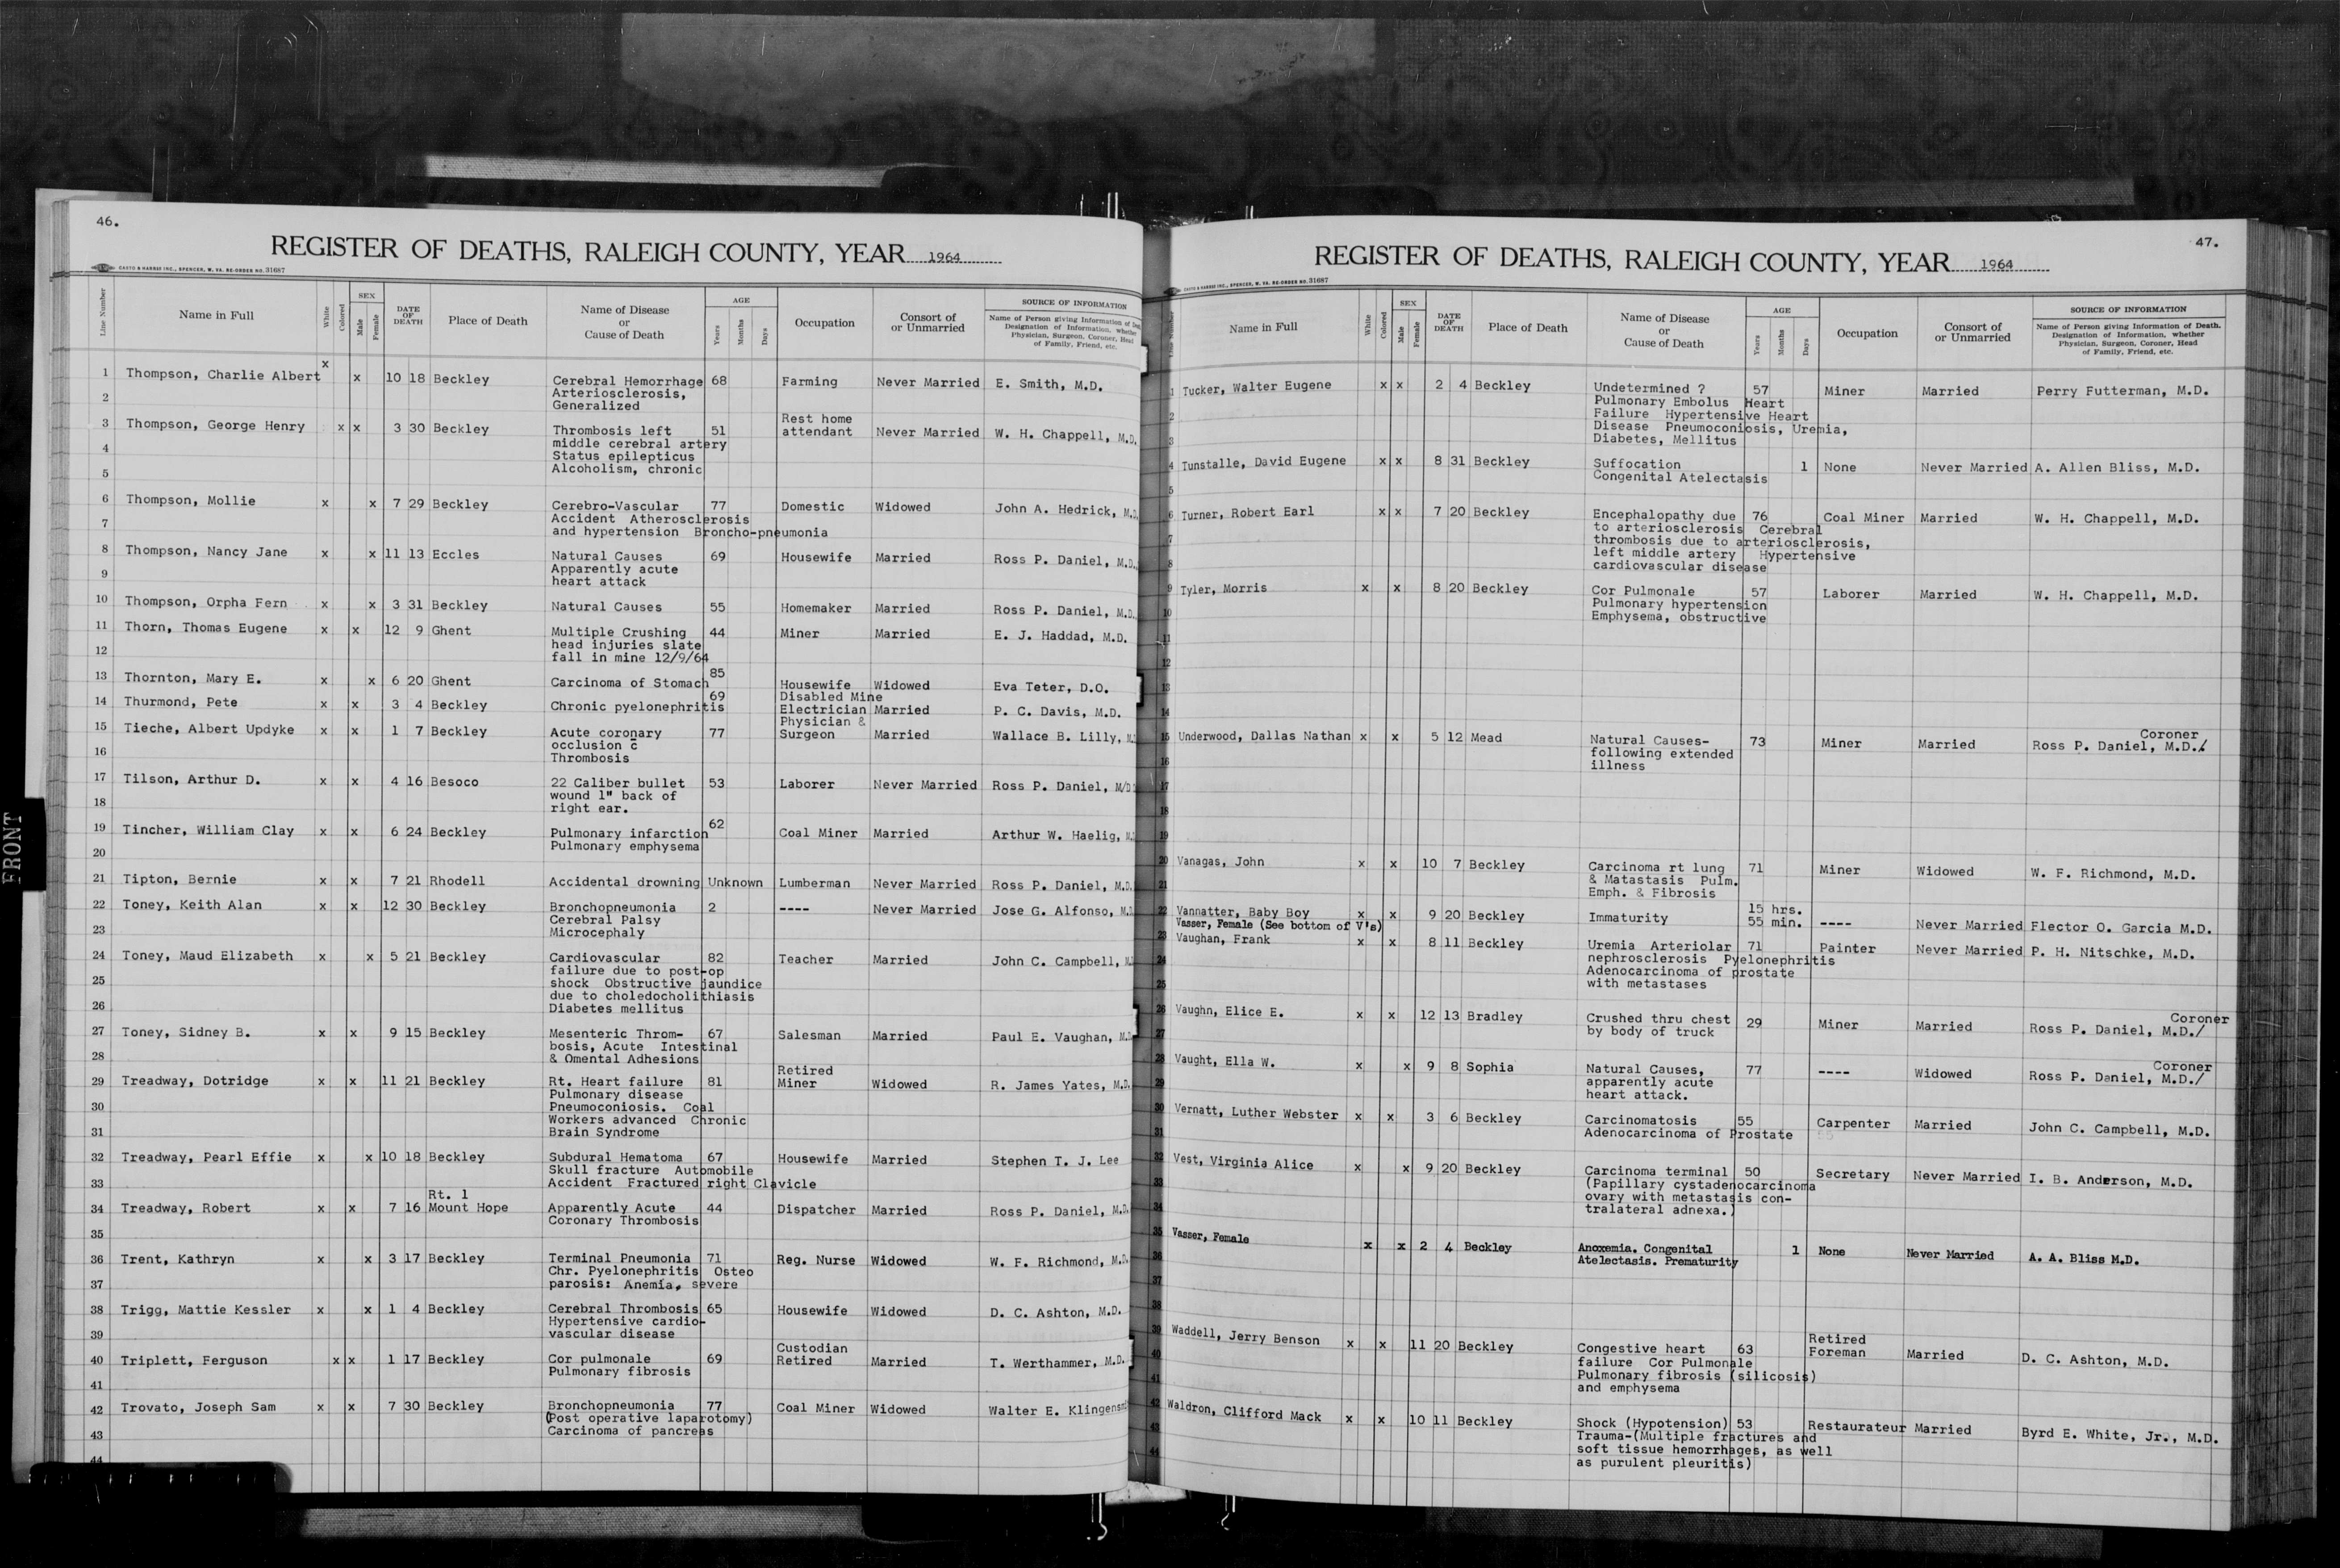 FRONT
46.
REGISTER OF DEATHS, RALEIGH COUNTY, YEAR 1964
CASTO & HARRIS INC., SPENCER, W. VA. RE-ORDER NO. 31687
Line Number Name in Full White Colored SEX Male Female DATE OF DEATH Place of Death Name of Disease or Cause of Death AGE Years Months Days Occupation Consort of or Unmarried SOURCE OF INFORMATION
Name of Person giving Information of Death, Designation of Information, whether Physician, Surgeon, Coroner, Head of Family, Friend, etc.
1 Thompson, Charlie Albert x x 10 18 Beckley Cerebral Hemorrhage 68 Farming Never Married E. Smith, M.D.
2 Arteriosclerosis,
Generalized
Rest home
3 Thompson, George Henry x x 3 30 Beckley Thrombosis left 51 attendant Never Married W. H. Chappell, M.D.
middle cerebral artery
4 Status epilepticus
5 Alcoholism, chronic
6 Thompson, Mollie x x 7 29 Beckley Cerebro-Vascular 77 Domestic Widowed John A. Hedrick, M.D.
7 Accident Atherosclerosis
and hypertension Broncho-pneumonia
8 Thompson, Nancy Jane x x 11 13 Eccles Natural Causes 69 Housewife Married Ross P. Daniel, M.D.
9 Apparently acute
heart attack
10 Thompson, Orpha Fern x x 3 31 Beckley Natural Causes 55 Homemaker Married Ross P. Daniel, M.D.
11 Thorn, Thomas Eugene x x 12 9 Ghent Multiple Crushing 44 Miner Married E. J. Haddad, M.D.
12 head injuries slate
fall in mine 12/9/64
13 Thornton, Mary E. x x 6 20 Ghent Carcinoma of Stomach 85 Housewife Widowed Eva Teter, D.O.
Disabled Mine
14 Thurmond, Pete x x 3 4 Beckley Chronic pyelonephritis 69 Electrician Married P. C. Davis, M.D.
Physician &
15 Tieche, Albert Updyke x x 1 7 Beckley Acute coronary 77 Surgeon Married Wallace B. Lilly, M.
16 occlusion c̄
Thrombosis
17 Tilson, Arthur D. x x 4 16 Besoco 22 Caliber bullet 53 Laborer Never Married Ross P. Daniel, M/D
18 wound 1" back of
right ear.
19 Tincher, William Clay x x 6 24 Beckley Pulmonary infarction 62 Coal Miner Married Arthur W. Haelig, M.
20 Pulmonary emphysema
21 Tipton, Bernie x x 7 21 Rhodell Accidental drowning Unknown Lumberman Never Married Ross P. Daniel, M.D.
22 Toney, Keith Alan x x 12 30 Beckley Bronchopneumonia 2 ---- Never Married Jose G. Alfonso, M.D
23 Cerebral Palsy
Microcephaly
24 Toney, Maud Elizabeth x x 5 21 Beckley Cardiovascular 82 Teacher Married John C. Campbell, M.
failure due to post-op
25 shock Obstructive jaundice
due to choledocholithiasis
26 Diabetes mellitus
27 Toney, Sidney B. x x 9 15 Beckley Mesenteric Throm- 67 Salesman Married Paul E. Vaughan, M.D
bosis, Acute Intestinal
28 & Omental Adhesions
Retired
29 Treadway, Dotridge x x 11 21 Beckley Rt. Heart failure 81 Miner Widowed R. James Yates, M.D.
Pulmonary disease
30 Pneumoconiosis. Coal
Workers advanced Chronic
31 Brain Syndrome
32 Treadway, Pearl Effie x x 10 18 Beckley Subdural Hematoma 67 Housewife Married Stephen T. J. Lee
Skull fracture Automobile
33 Accident Fractured right Clavicle
Rt. 1
34 Treadway, Robert x x 7 16 Mount Hope Apparently Acute 44 Dispatcher Married Ross P. Daniel, M.D.
Coronary Thrombosis
35
36 Trent, Kathryn x x 3 17 Beckley Terminal Pneumonia 71 Reg. Nurse Widowed W. F. Richmond, M.D.
Chr. Pyelonephritis Osteo
37 parosis: Anemia, severe
38 Trigg, Mattie Kessler x x 1 4 Beckley Cerebral Thrombosis 65 Housewife Widowed D. C. Ashton, M.D.
Hypertensive cardio-
39 vascular disease
Custodian
40 Triplett, Ferguson x x 1 17 Beckley Cor pulmonale 69 Retired Married T. Werthammer, M.D.
Pulmonary fibrosis
41
42 Trovato, Joseph Sam x x 7 30 Beckley Bronchopneumonia 77 Coal Miner Widowed Walter E. Klingensmi
(Post operative laparotomy)
43 Carcinoma of pancreas
44
47.
REGISTER OF DEATHS, RALEIGH COUNTY, YEAR 1964
CASTO & HARRIS INC., SPENCER, W. VA. RE-ORDER NO. 31687
Line Number Name in Full White Colored SEX Male Female DATE OF DEATH Place of Death Name of Disease or Cause of Death AGE Years Months Days Occupation Consort of or Unmarried SOURCE OF INFORMATION
Name of Person giving Information of Death. Designation of Information, whether Physician, Surgeon, Coroner, Head of Family, Friend, etc.
1 Tucker, Walter Eugene x x 2 4 Beckley Undetermined ? 57 Miner Married Perry Futterman, M.D.
Pulmonary Embolus Heart
2 Failure Hypertensive Heart
Disease Pneumoconiosis, Uremia,
3 Diabetes, Mellitus
4 Tunstalle, David Eugene x x 8 31 Beckley Suffocation 1 None Never Married A. Allen Bliss, M.D.
Congenital Atelectasis
5
6 Turner, Robert Earl x x 7 20 Beckley Encephalopathy due 76 Coal Miner Married W. H. Chappell, M.D.
to arteriosclerosis Cerebral
7 thrombosis due to arteriosclerosis,
left middle artery Hypertensive
8 cardiovascular disease
9 Tyler, Morris x x 8 20 Beckley Cor Pulmonale 57 Laborer Married W. H. Chappell, M.D.
10 Pulmonary hypertension
Emphysema, obstructive
11
12
13
14
Coroner
15 Underwood, Dallas Nathan x x 5 12 Mead Natural Causes- 73 Miner Married Ross P. Daniel, M.D./
following extended
16 illness
17
18
19
20 Vanagas, John x x 10 7 Beckley Carcinoma rt lung 71 Miner Widowed W. F. Richmond, M.D.
21 & Metastasis Pulm.
Emph. & Fibrosis
15 hrs.
22 Vannatter, Baby Boy x x 9 20 Beckley Immaturity 55 min. ---- Never Married Flector O. Garcia M.D.
Vasser, Female (See bottom of V's)
23 Vaughan, Frank x x 8 11 Beckley Uremia Arteriolar 71 Painter Never Married P. H. Nitschke, M.D.
24 nephrosclerosis Pyelonephritis
Adenocarcinoma of prostate
25 with metastases
Coroner
26 Vaughn, Elice E. x x 12 13 Bradley Crushed thru chest 29 Miner Married Ross P. Daniel, M.D./
27 by body of truck
Coroner
28 Vaught, Ella W. x x 9 8 Sophia Natural Causes, 77 ---- Widowed Ross P. Daniel, M.D./
29 apparently acute
heart attack.
30 Vernatt, Luther Webster x x 3 6 Beckley Carcinomatosis 55 Carpenter Married John C. Campbell, M.D.
31 Adenocarcinoma of Prostate
32 Vest, Virginia Alice x x 9 20 Beckley Carcinoma terminal 50 Secretary Never Married I. B. Anderson, M.D.
33 (Papillary cystadenocarcinoma
ovary with metastasis con-
34 tralateral adnexa.)
35 Vasser, Female x x 2 4 Beckley Anoxemia. Congenital 1 None Never Married A. A. Bliss M.D.
36 Atelectasis. Prematurity
37
38
Retired
39 Waddell, Jerry Benson x x 11 20 Beckley Congestive heart 63 Foreman Married D. C. Ashton, M.D.
40 failure Cor Pulmonale
41 Pulmonary fibrosis (silicosis)
and emphysema
42 Waldron, Clifford Mack x x 10 11 Beckley Shock (Hypotension) 53 Restaurateur Married Byrd E. White, Jr., M.D.
43 Trauma-(Multiple fractures and
soft tissue hemorrhages, as well
44 as purulent pleuritis)